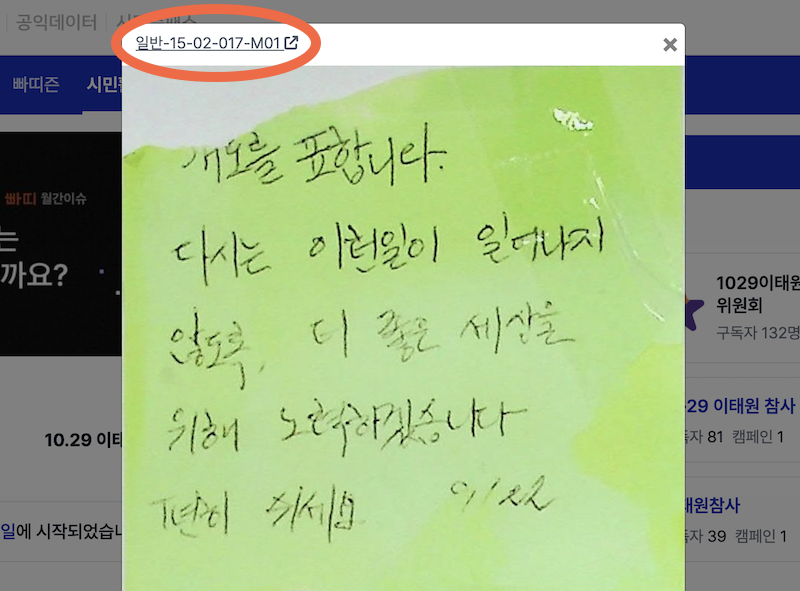 공익데이터
일반-15-02-017-M01
빠띠즌
빠띠 월간이슈
는
까요?
10.29 이태
일에 시작되었습니
애도를 표합니다.
다시는 이런일이 일어나지
않도록, 더 좋은 세상을
위해 노력하겠습니다
편히 쉬세요 9/22
1029이태원
위원회
구독자 132명
29 이태원 참사
독자 81 캠페인 1
태원참사
독자 39 캠페인 1